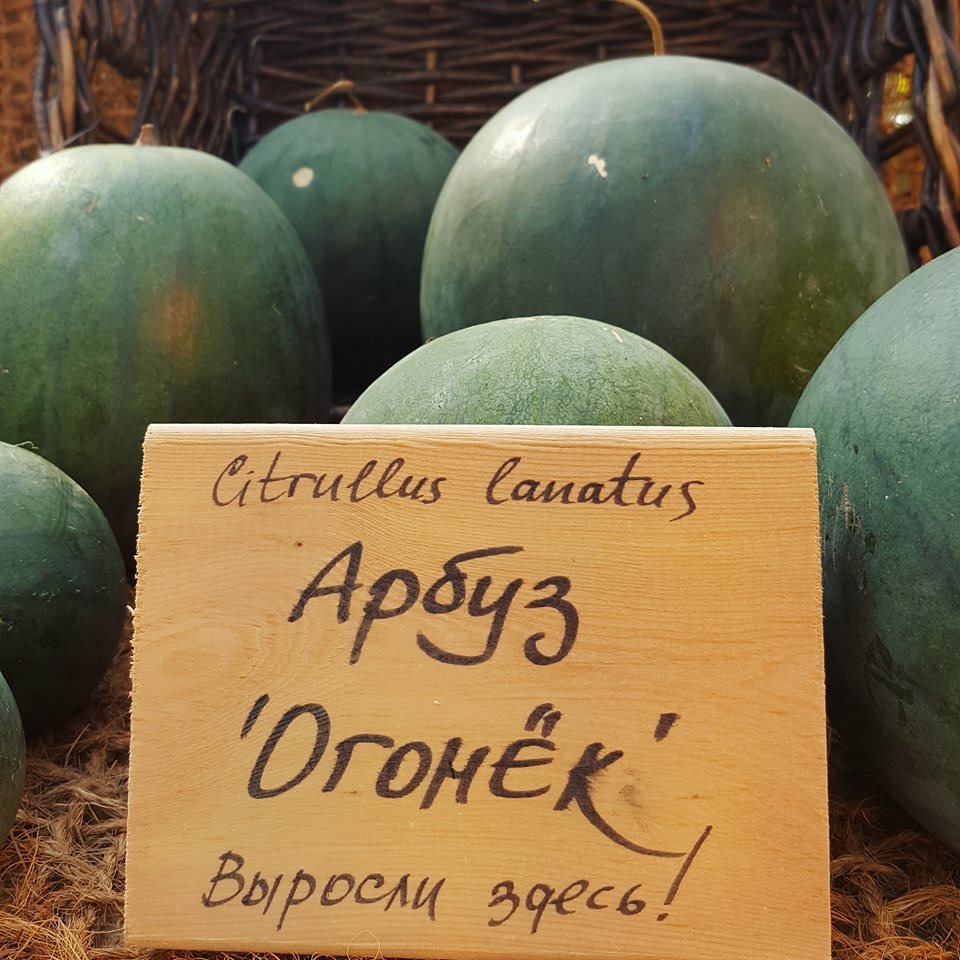 Citrullus lanatus
Арбуз
'Огонёк'
Выросли здесь!